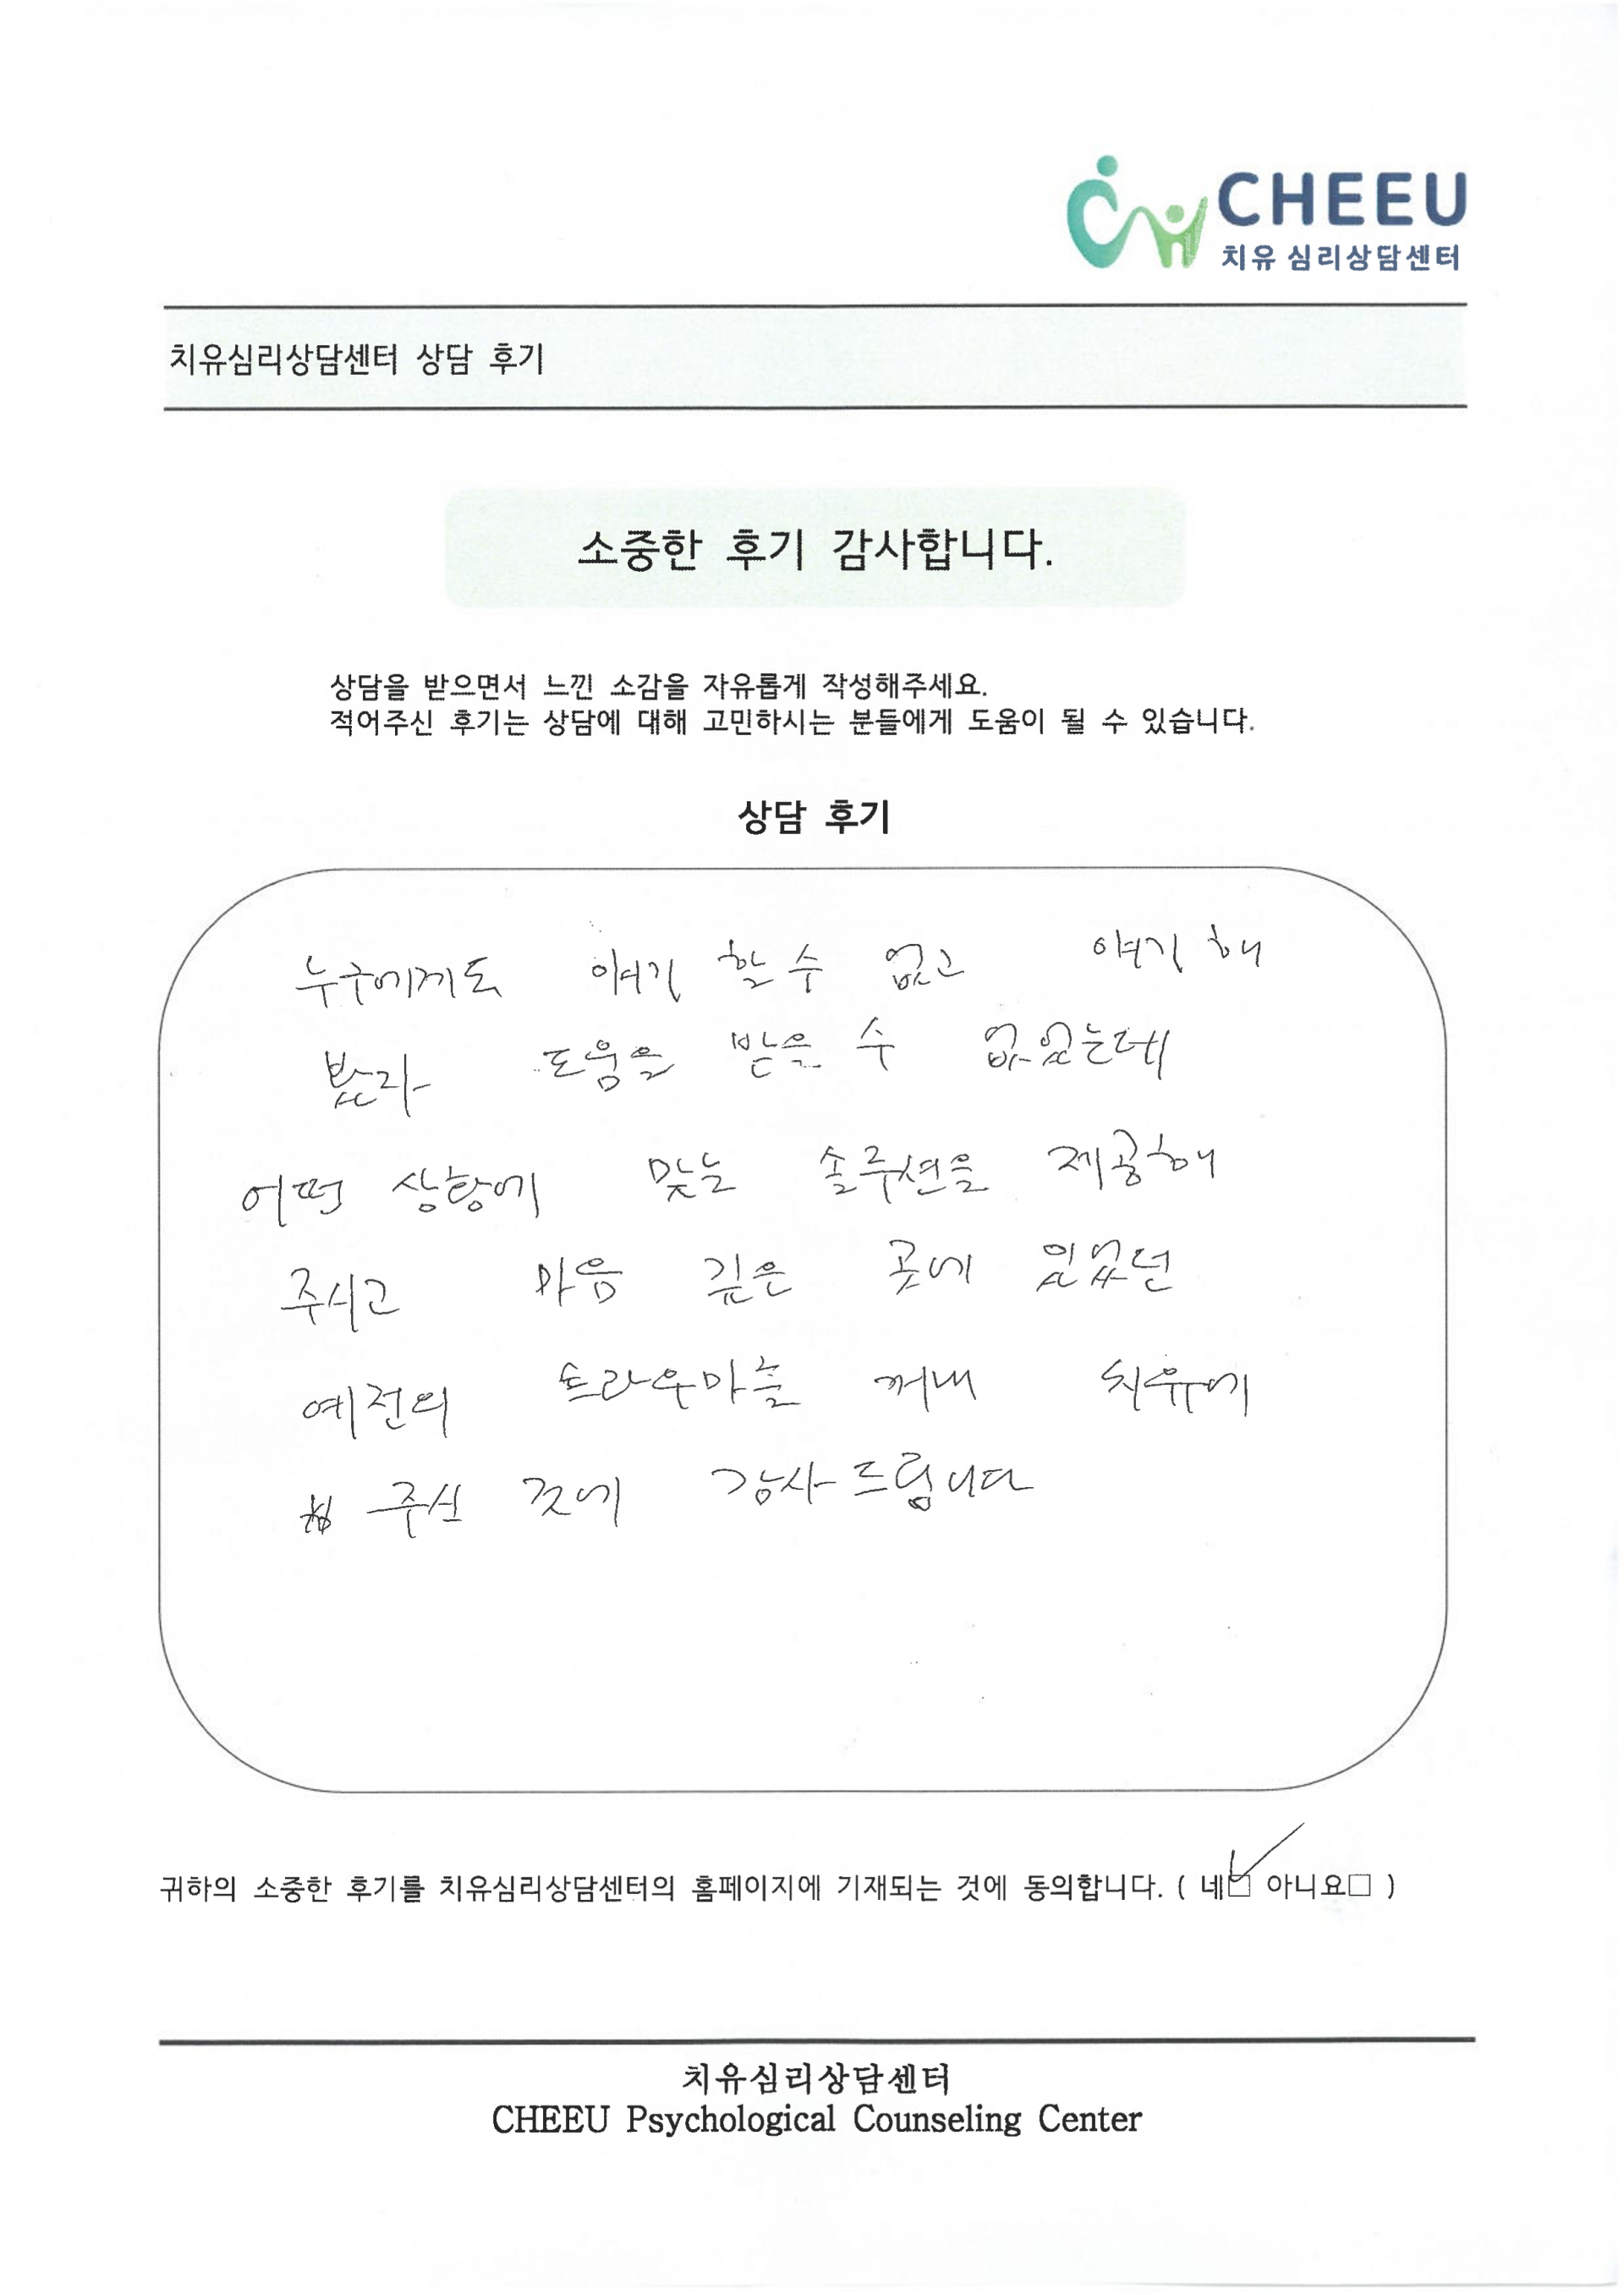 CHEEU
치유 심리상담센터
치유심리상담센터 상담 후기
소중한 후기 감사합니다.
상담을 받으면서 느낀 소감을 자유롭게 작성해주세요.
적어주신 후기는 상담에 대해 고민하시는 분들에게 도움이 될 수 있습니다.
상담 후기
누구에게도 얘기 할 수 없고 얘기 해
봤자 도움을 받을 수 없었는데
어떤 상황에 맞는 솔루션을 제공해
주시고 마음 깊은 곳에 있었던
예전의 트라우마를 꺼내 치유에
주신 것에 감사드립니다
귀하의 소중한 후기를 치유심리상담센터의 홈페이지에 기재되는 것에 동의합니다. ( 네☑ 아니요□ )
치유심리상담센터
CHEEU Psychological Counseling Center